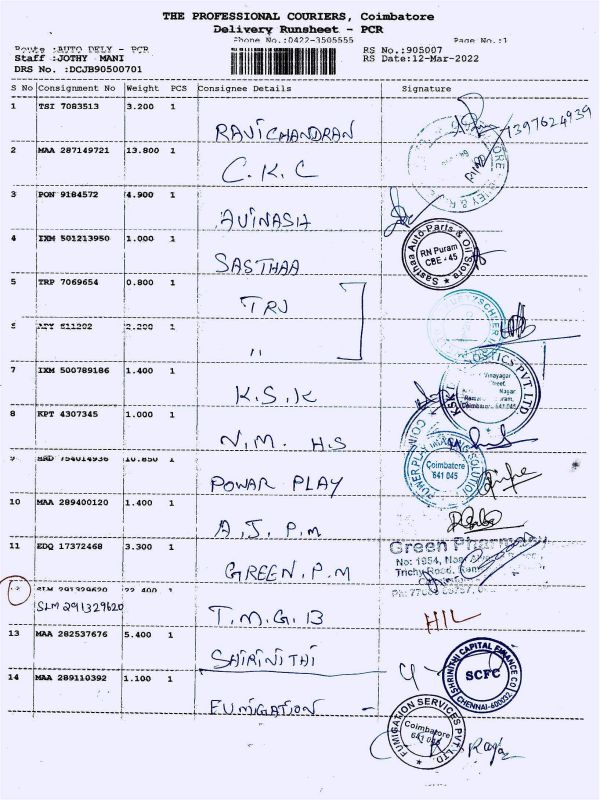 THE PROFESSIONAL COURIERS, Coimbatore
Delivery Runsheet - PCR
Phone No.:0422-3505555 Page No.:1
Route :AUTO DELY - PCR RS No.:905007
Staff :JOTHY MANI RS Date:12-Mar-2022
DRS No. :DCJB90500701
S No Consignment No Weight PCS Consignee Details Signature
1 TSI 7083513 3.200 1
RAVICHANDRAN 7397624939
2 MAA 287149721 13.800 1
C.K.C
3 PON 9184572 4.900 1
AVINASH
4 IXM 501213950 1.000 1
SASTHAA
Sasthaa Auto Parts & Oil Store
RN Puram
CBE - 45
5 TRP 7069654 0.800 1
TRU
511202 2.200 1
"
7 IXM 500789186 1.400 1
K.S.K
PVT. LTD.
Coimbatore 641 045
8 KPT 4307345 1.000 1
N.M. H.S
9 754014936 10.850 1
POWAR PLAY
Coimbatore
641 045
10 MAA 289400120 1.400 1
A.J. P.M
11 EDQ 17372468 3.300 1
GREEN. P.M
Green Pharmacy
No: 1954,
Trichy Road,
12 SLM 291329620 22.400 1
SLM 291329620
T.M.G. 13
HIL
13 MAA 282537676 5.400 1
SHIRINITHI
SHRINITHI CAPITAL FINANCE CO
SCFC
CHENNAI-600092
14 MAA 289110392 1.100 1
FUMIGATION -
FUMIGATION SERVICES PVT. LTD.
Coimbatore
641 045